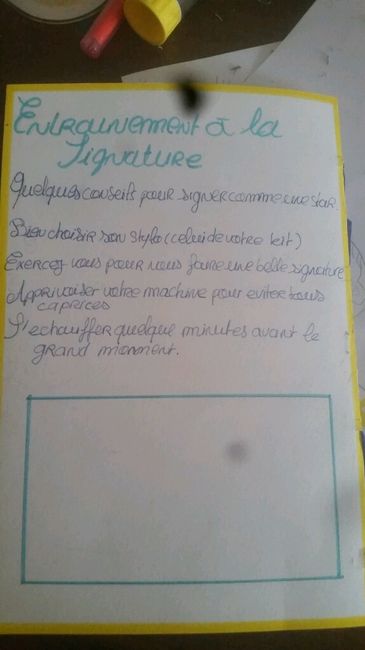 Entrainement à la
Signature
Quelques conseils pour signer comme une star.
Bien choisir son stylo (celui de votre kit)
Exercez vous pour vous faire une belle signature
Apprivoiser votre machine pour eviter tous
caprices
S'echauffer quelque minutes avant le
grand moment.